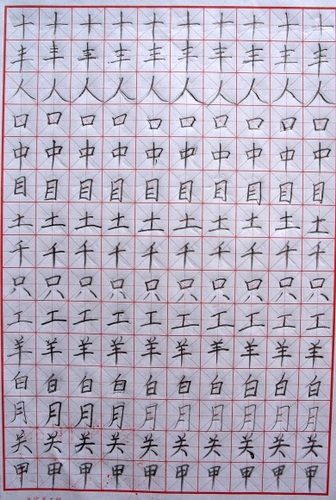 十十十十十十十十十十
丰丰丰丰丰丰丰丰丰丰
人人人人人人人人人人
口口口口口口口口口口
中中中中中中中中中中
目目目目目目目目目目
土土土土土土土土土土
千千千千千千千千千千
只只只只只只只只只只
工工工工工工工工工工
羊羊羊羊羊羊羊羊羊羊
白白白白白白白白白白
月月月月月月月月月月
关关关关关关关关关关
甲甲甲甲甲甲甲甲甲甲